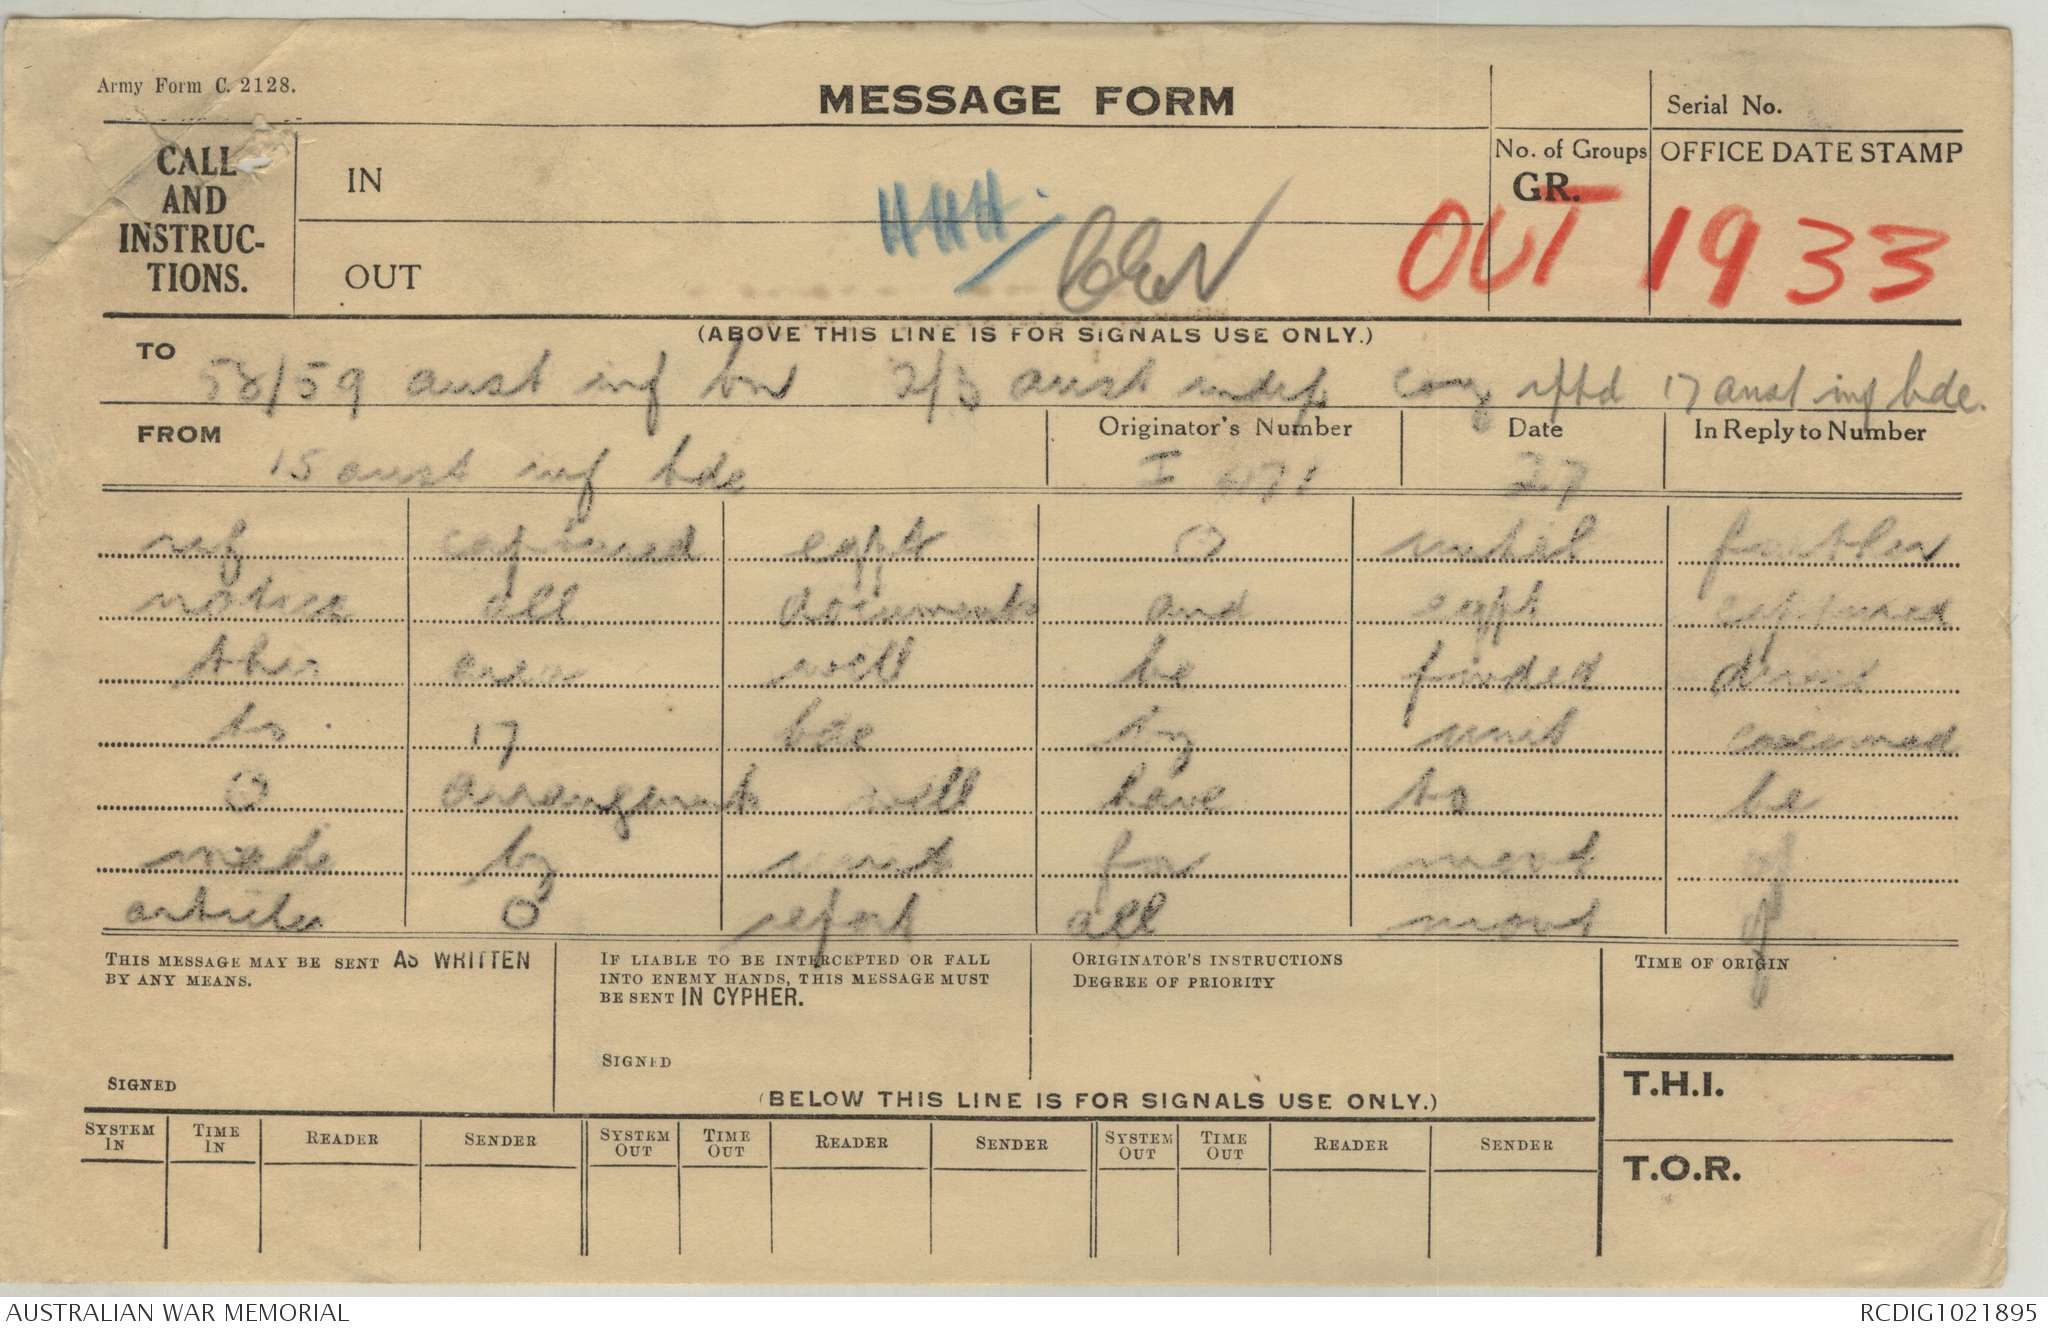 Army Form C. 2128.
MESSAGE FORM
Serial No.
CALL AND INSTRUC- TIONS.
IN
OUT
No. of Groups
GR.
OFFICE DATE STAMP
HHH.
OUT 1933
(ABOVE THIS LINE IS FOR SIGNALS USE ONLY.)
TO 58/59 aust inf bn 2/3 aust indep coy rptd 17 aust inf bde.
FROM 15 aust inf bde
Originator's Number I
Date 27
In Reply to Number
ref captured eqpt O until further
notice all documents and eqpt captured
this area will be fwded direct
to 17 bde by unit concerned
O arrangements will have to be
made by unit for movt of
articles O report all movt of
THIS MESSAGE MAY BE SENT AS WRITTEN BY ANY MEANS.
SIGNED
IF LIABLE TO BE INTERCEPTED OR FALL INTO ENEMY HANDS, THIS MESSAGE MUST BE SENT IN CYPHER.
SIGNED
ORIGINATOR'S INSTRUCTIONS
DEGREE OF PRIORITY
TIME OF ORIGIN
(BELOW THIS LINE IS FOR SIGNALS USE ONLY.)
T.H.I.
T.O.R.
SYSTEM IN TIME IN READER SENDER SYSTEM OUT TIME OUT READER SENDER SYSTEM OUT TIME OUT READER SENDER
AUSTRALIAN WAR MEMORIAL
RCDIG1021895